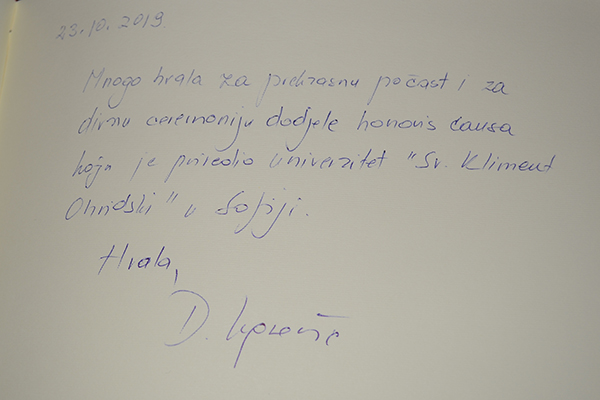 23.10.2019
Mnogo hvala za prekrasnu počast i za
divnu ceremoniju dodjele honoris causa
koju je priredio univerzitet "Sv. Kliment
Ohridski" u Sofiji.
Hvala,
D.